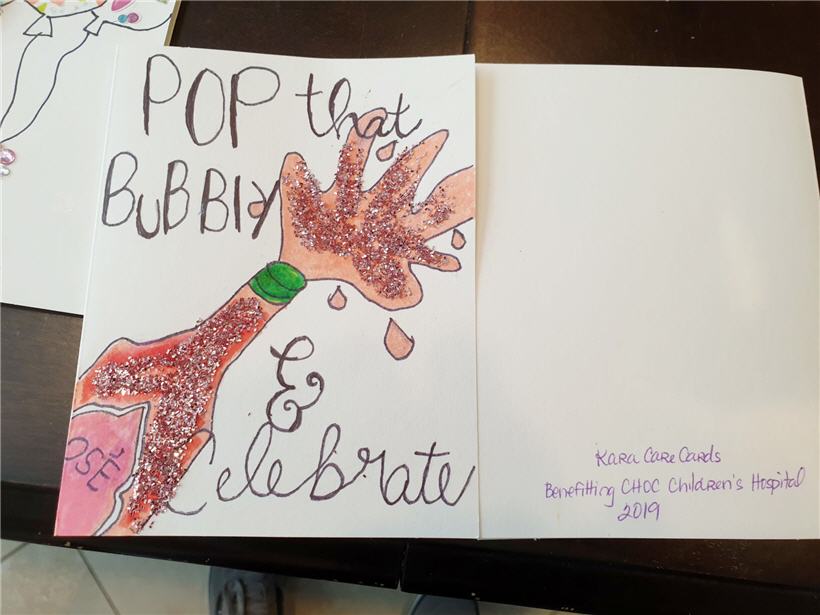 POP that
BUBBly
&
Celebrate
OSÉ
Kara Care Cards
Benefitting CHOC Children's Hospital
2019